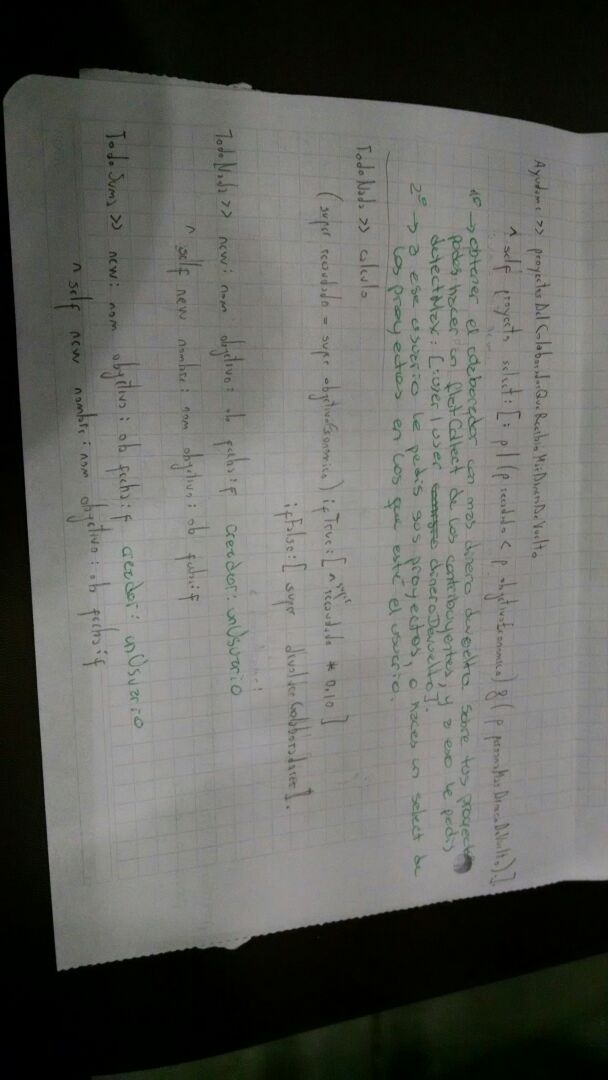 Ayudame >> proyectosDelColaboradorQueRecibioMasDineroDeVuelto
^ self proyecto select: [: p | (p recaudado < p objetivoEconomico) & ( p personaMasDineroDeVuelto).]
1º → obtener el colaborador con mas dinero devuelto sobre tus proyectos
podes hacer un flatCollect de los contribuyentes, y a eso le pedis
detectMax: [:user | user dineroDevuelto].
2º → a ese usuario le pedis sus proyectos, o haces un select de
los proyectos en los que esté el usuario.
TodoNada >> calculo
(super recaudado = super objetivoEconomico) ifTrue: [ ^ super recaudado * 0,10 ]
ifFalse: [ super devolderColaboradores].
TodoNada >> new: nom objetivo: ob fecha: f creador: unUsuario
^ self new nombre: nom objetivo: ob fecha: f
TodoSuma >> new: nom objetivo: ob fecha: f creador: unUsuario
^ self new nombre: nom objetivo: ob fecha: f